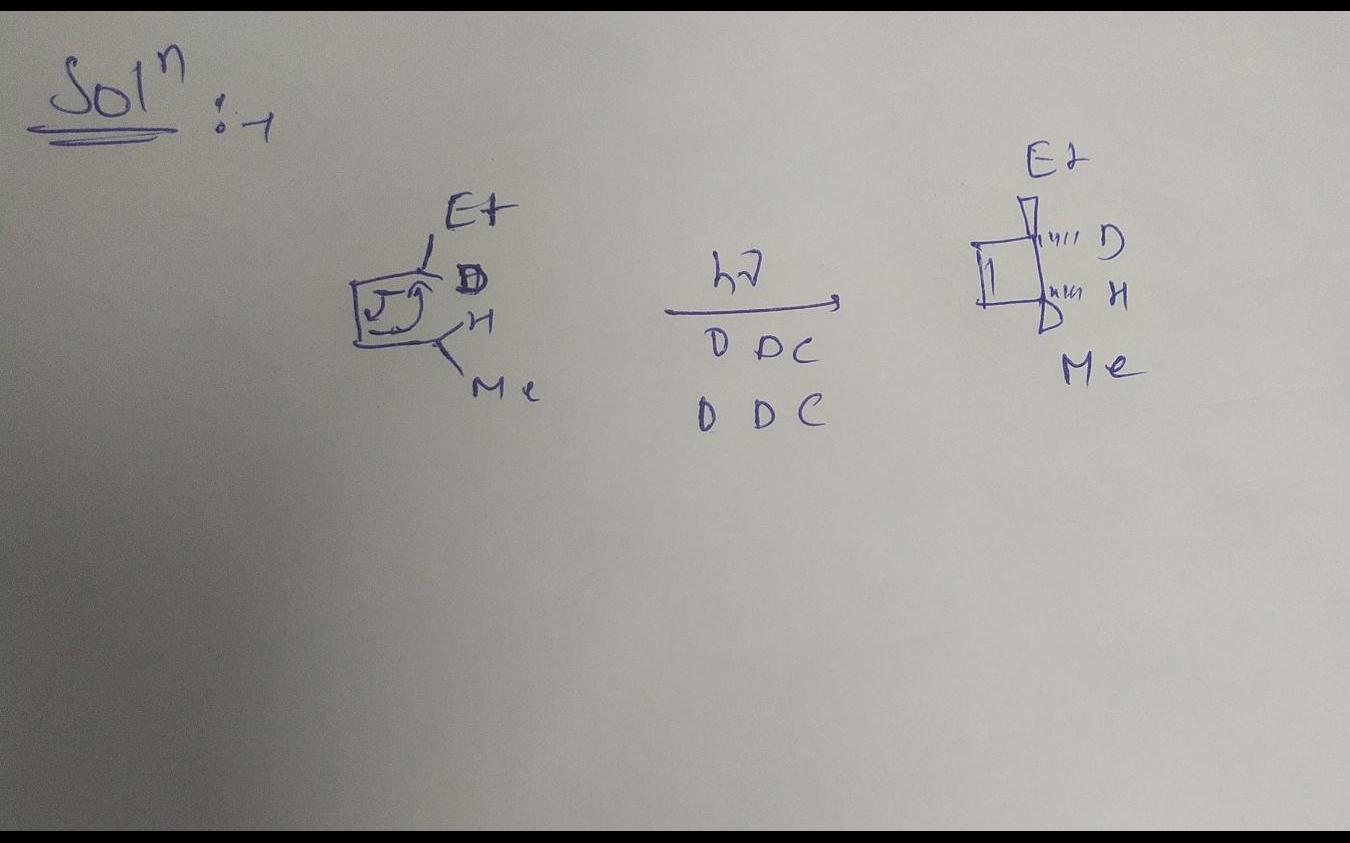 Solⁿ :-
Et
D
H
Me
hν
D DC
D DC
Et
D
H
Me